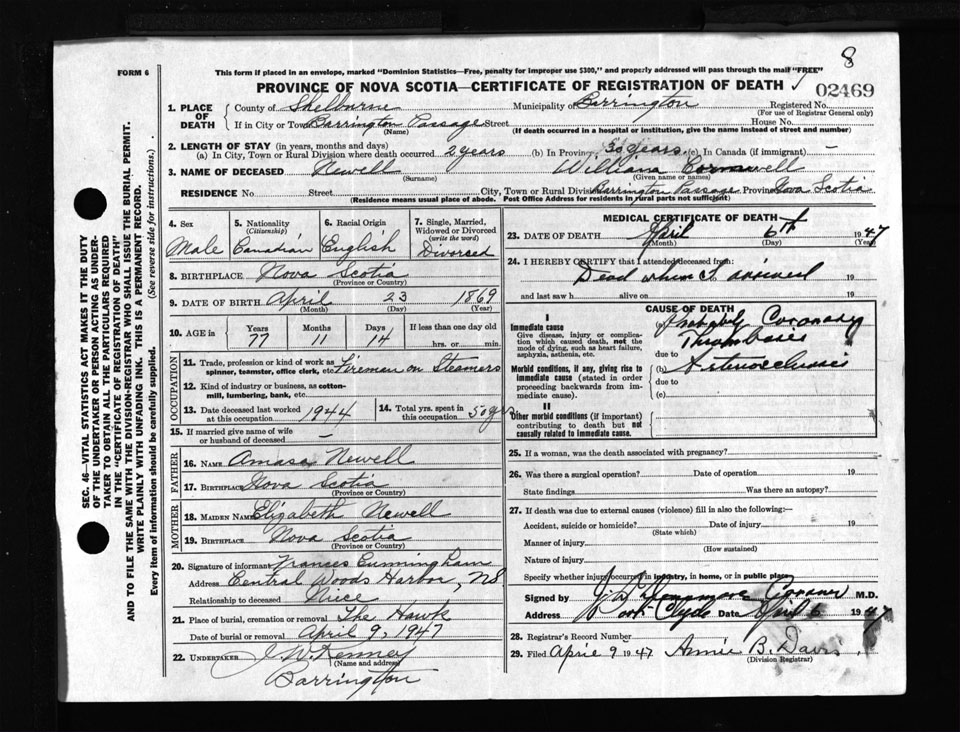 8
FORM 6
This form if placed in an envelope, marked "Dominion Statistics—Free, penalty for improper use $300," and properly addressed will pass through the mail "FREE"
PROVINCE OF NOVA SCOTIA—CERTIFICATE OF REGISTRATION OF DEATH
02469
1. PLACE OF DEATH
County of Shelburne Municipality of Barrington Registered No.
(For use of Registrar General only)
If in City or Town Barrington Passage Street House No.
(Name) (If death occurred in a hospital or institution, give the name instead of street and number)
2. LENGTH OF STAY (in years, months and days)
(a) In City, Town or Rural Division where death occurred 2 years (b) In Province 30 years. (c) In Canada (if immigrant) —
3. NAME OF DECEASED Newell William
(Surname) (Given name or names)
RESIDENCE No. Street City, Town or Rural Division Barrington Passage Province Nova Scotia
(Residence means usual place of abode. Post Office Address for residents in rural parts not sufficient)
4. Sex
Male
5. Nationality
(Citizenship)
Canadian
6. Racial Origin
English
7. Single, Married, Widowed or Divorced
(write the word)
Divorsed
8. BIRTHPLACE Nova Scotia
(Province or Country)
9. DATE OF BIRTH April 23 1869
(Month) (Day) (Year)
10. AGE in
Years Months Days If less than one day old
77 11 14 hrs. or min.
OCCUPATION
11. Trade, profession or kind of work as spinner, teamster, office clerk, etc. Fireman on Steamers
12. Kind of industry or business, as cotton-mill, lumbering, bank, etc.
13. Date deceased last worked at this occupation 1944
14. Total yrs. spent in this occupation 50 yrs
15. If married give name of wife or husband of deceased —
FATHER
16. NAME Amasa Newell
17. BIRTHPLACE Nova Scotia
(Province or Country)
MOTHER
18. MAIDEN NAME Elizabeth Newell
19. BIRTHPLACE Nova Scotia
(Province or Country)
20. Signature of informant Frances Cunningham
Address Central Woods Harbor, NS
Relationship to deceased Niece
21. Place of burial, cremation or removal The Hawk
Date of burial or removal April 9, 1947
22. UNDERTAKER J. W. Kenney
(Name and address)
Barrington
MEDICAL CERTIFICATE OF DEATH
23. DATE OF DEATH April 6th 1947
(Month) (Day) (Year)
24. I HEREBY CERTIFY that I attended deceased from:
Dead when I arrived 19
and last saw h alive on 19
CAUSE OF DEATH
I
Immediate cause
Give disease, injury or complication which caused death, not the mode of dying, such as heart failure, asphyxia, asthenia, etc.
Probably Coronary
Thrombosis
due to
Morbid conditions, if any, giving rise to immediate cause (stated in order proceeding backwards from immediate cause).
(b) Arteriosclerosis
due to
(c)
II
Other morbid conditions (if important) contributing to death but not causally related to immediate cause.
25. If a woman, was the death associated with pregnancy?
26. Was there a surgical operation? Date of operation 19
State findings Was there an autopsy?
27. If death was due to external causes (violence) fill in also the following:—
Accident, suicide or homicide? Date of injury 19
(State which)
Manner of injury
(How sustained)
Nature of injury
Specify whether injury occurred in industry, in home, or in public place
Signed by Coroner M.D.
Address Port Clyde Date April 6 1947
28. Registrar's Record Number
29. Filed April 9 1947 Annie B. Davis
(Division Registrar)
SEC. 46—VITAL STATISTICS ACT MAKES IT THE DUTY
OF THE UNDERTAKER OR PERSON ACTING AS UNDER-
TAKER TO OBTAIN ALL THE PARTICULARS REQUIRED
IN THE "CERTIFICATE OF REGISTRATION OF DEATH"
AND TO FILE THE SAME WITH THE DIVISION REGISTRAR WHO SHALL ISSUE THE BURIAL PERMIT.
WRITE PLAINLY WITH UNFADING INK. THIS IS A PERMANENT RECORD.
Every item of information should be carefully supplied. (See reverse side for instructions.)